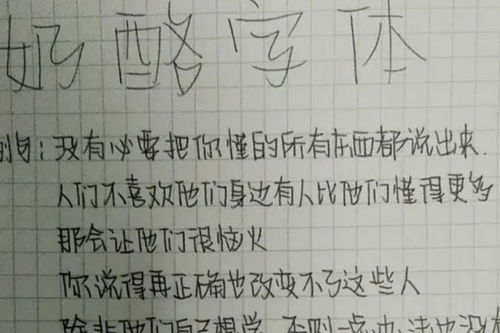 奶酪字体
例句:没有必要把你懂的所有东西都说出来.
人们不喜欢他们身边有人比他们懂得更多
那会让他们很恼火
你说得再正确也改变不了这些人
除非他们自己想学,否则一点办法也没有